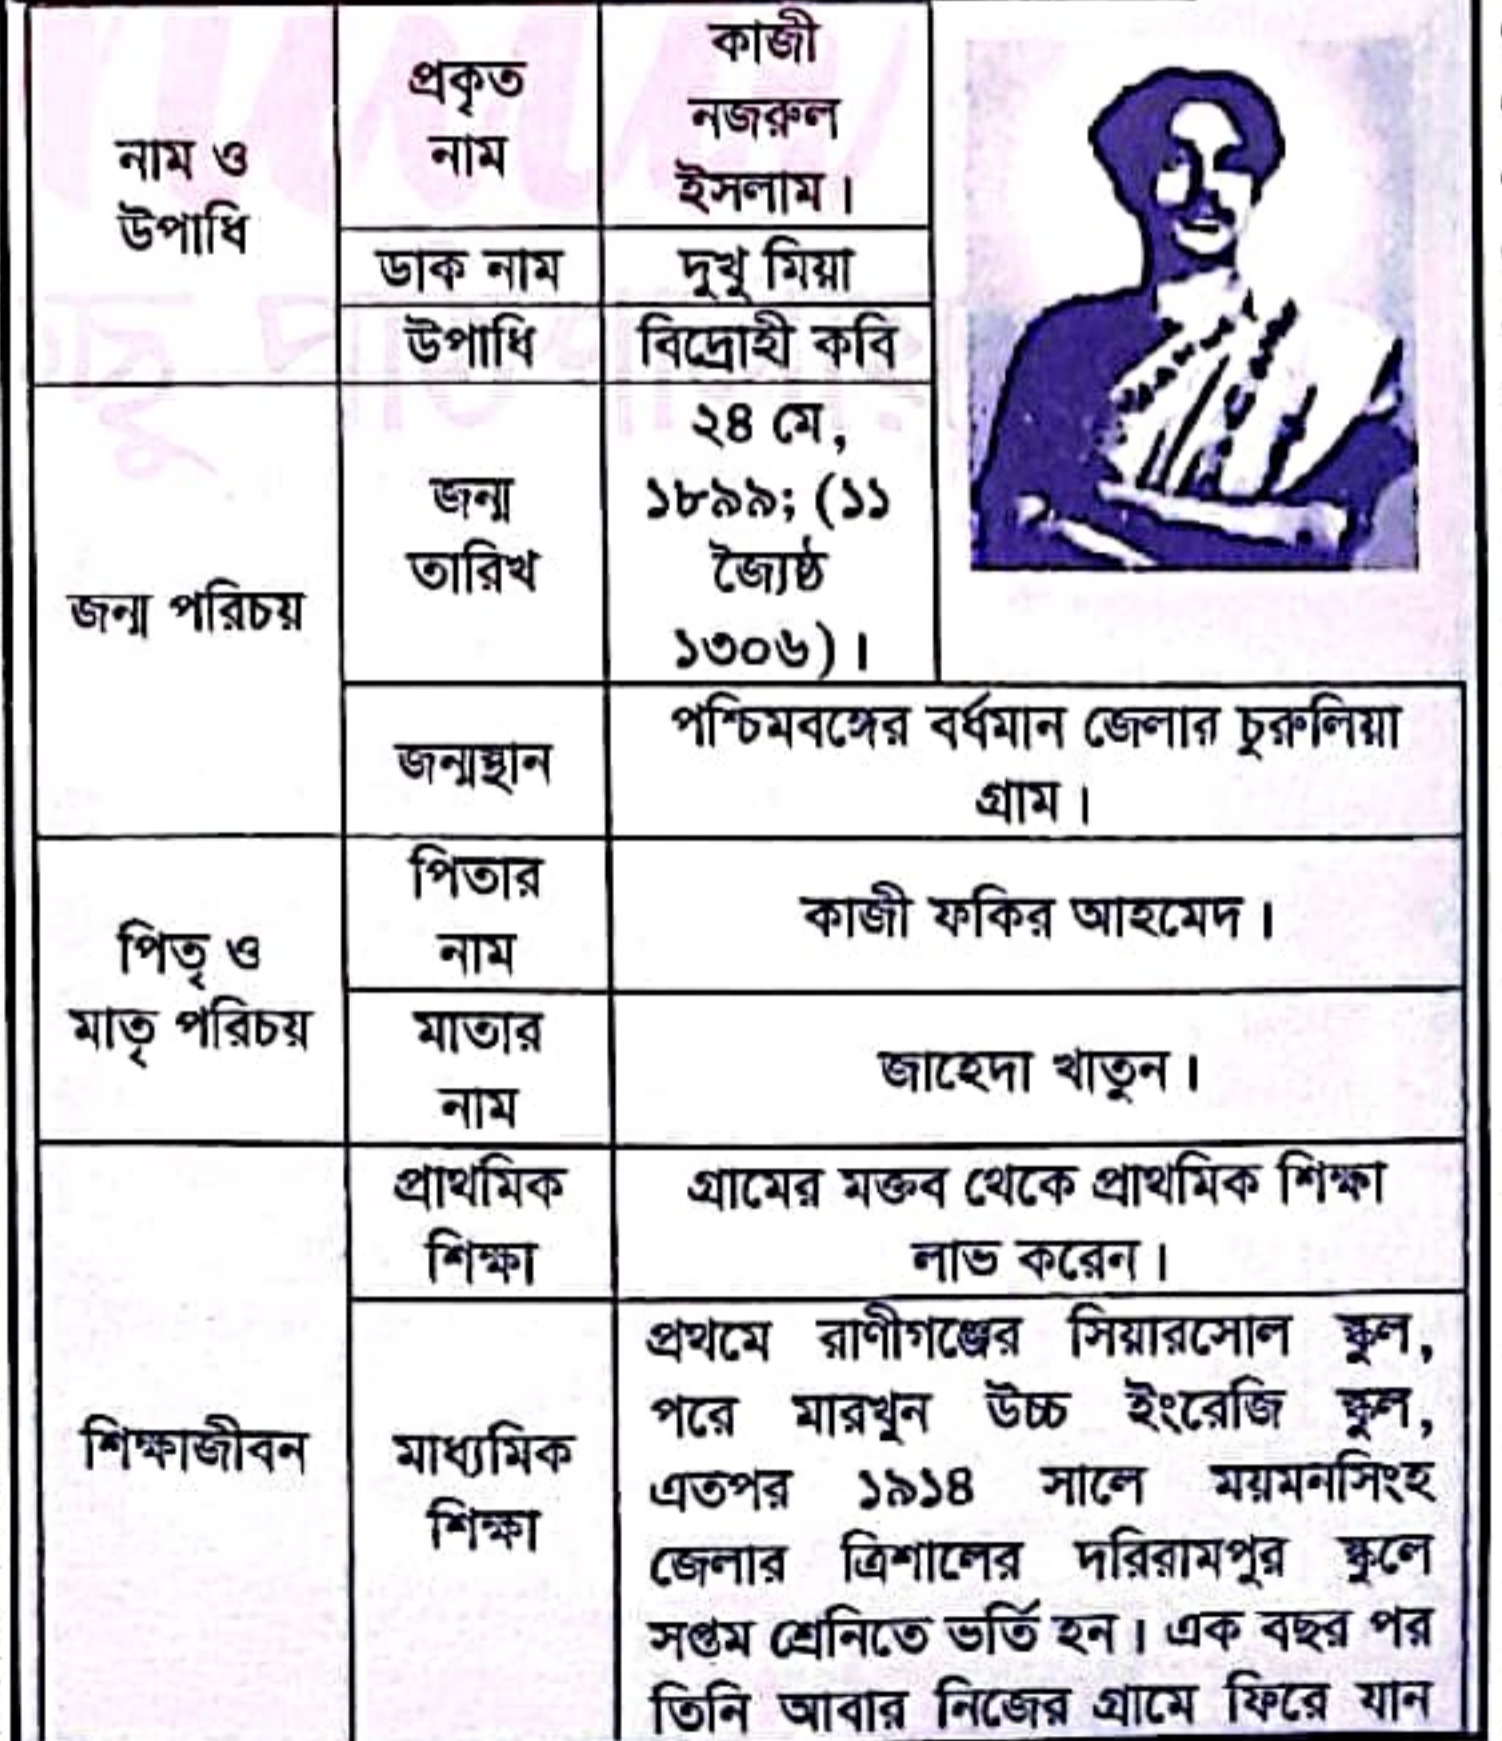 নাম ও
উপাধি
প্রকৃত
নাম
কাজী
নজরুল
ইসলাম।
ডাক নাম
দুখু মিয়া
উপাধি
বিদ্রোহী কবি
জন্ম পরিচয়
জন্ম
তারিখ
২৪ মে,
১৮৯৯; (১১
জ্যৈষ্ঠ
১৩০৬)।
জন্মস্থান
পশ্চিমবঙ্গের বর্ধমান জেলার চুরুলিয়া
গ্রাম।
পিতৃ ও
মাতৃ পরিচয়
পিতার
নাম
কাজী ফকির আহমেদ।
মাতার
নাম
জাহেদা খাতুন।
শিক্ষাজীবন
প্রাথমিক
শিক্ষা
গ্রামের মক্তব থেকে প্রাথমিক শিক্ষা
লাভ করেন।
মাধ্যমিক
শিক্ষা
প্রথমে রাণীগঞ্জের সিয়ারসোল স্কুল,
পরে মারখুন উচ্চ ইংরেজি স্কুল,
এতপর ১৯১৪ সালে ময়মনসিংহ
জেলার ত্রিশালের দরিরামপুর স্কুলে
সপ্তম শ্রেনিতে ভর্তি হন। এক বছর পর
তিনি আবার নিজের গ্রামে ফিরে যান